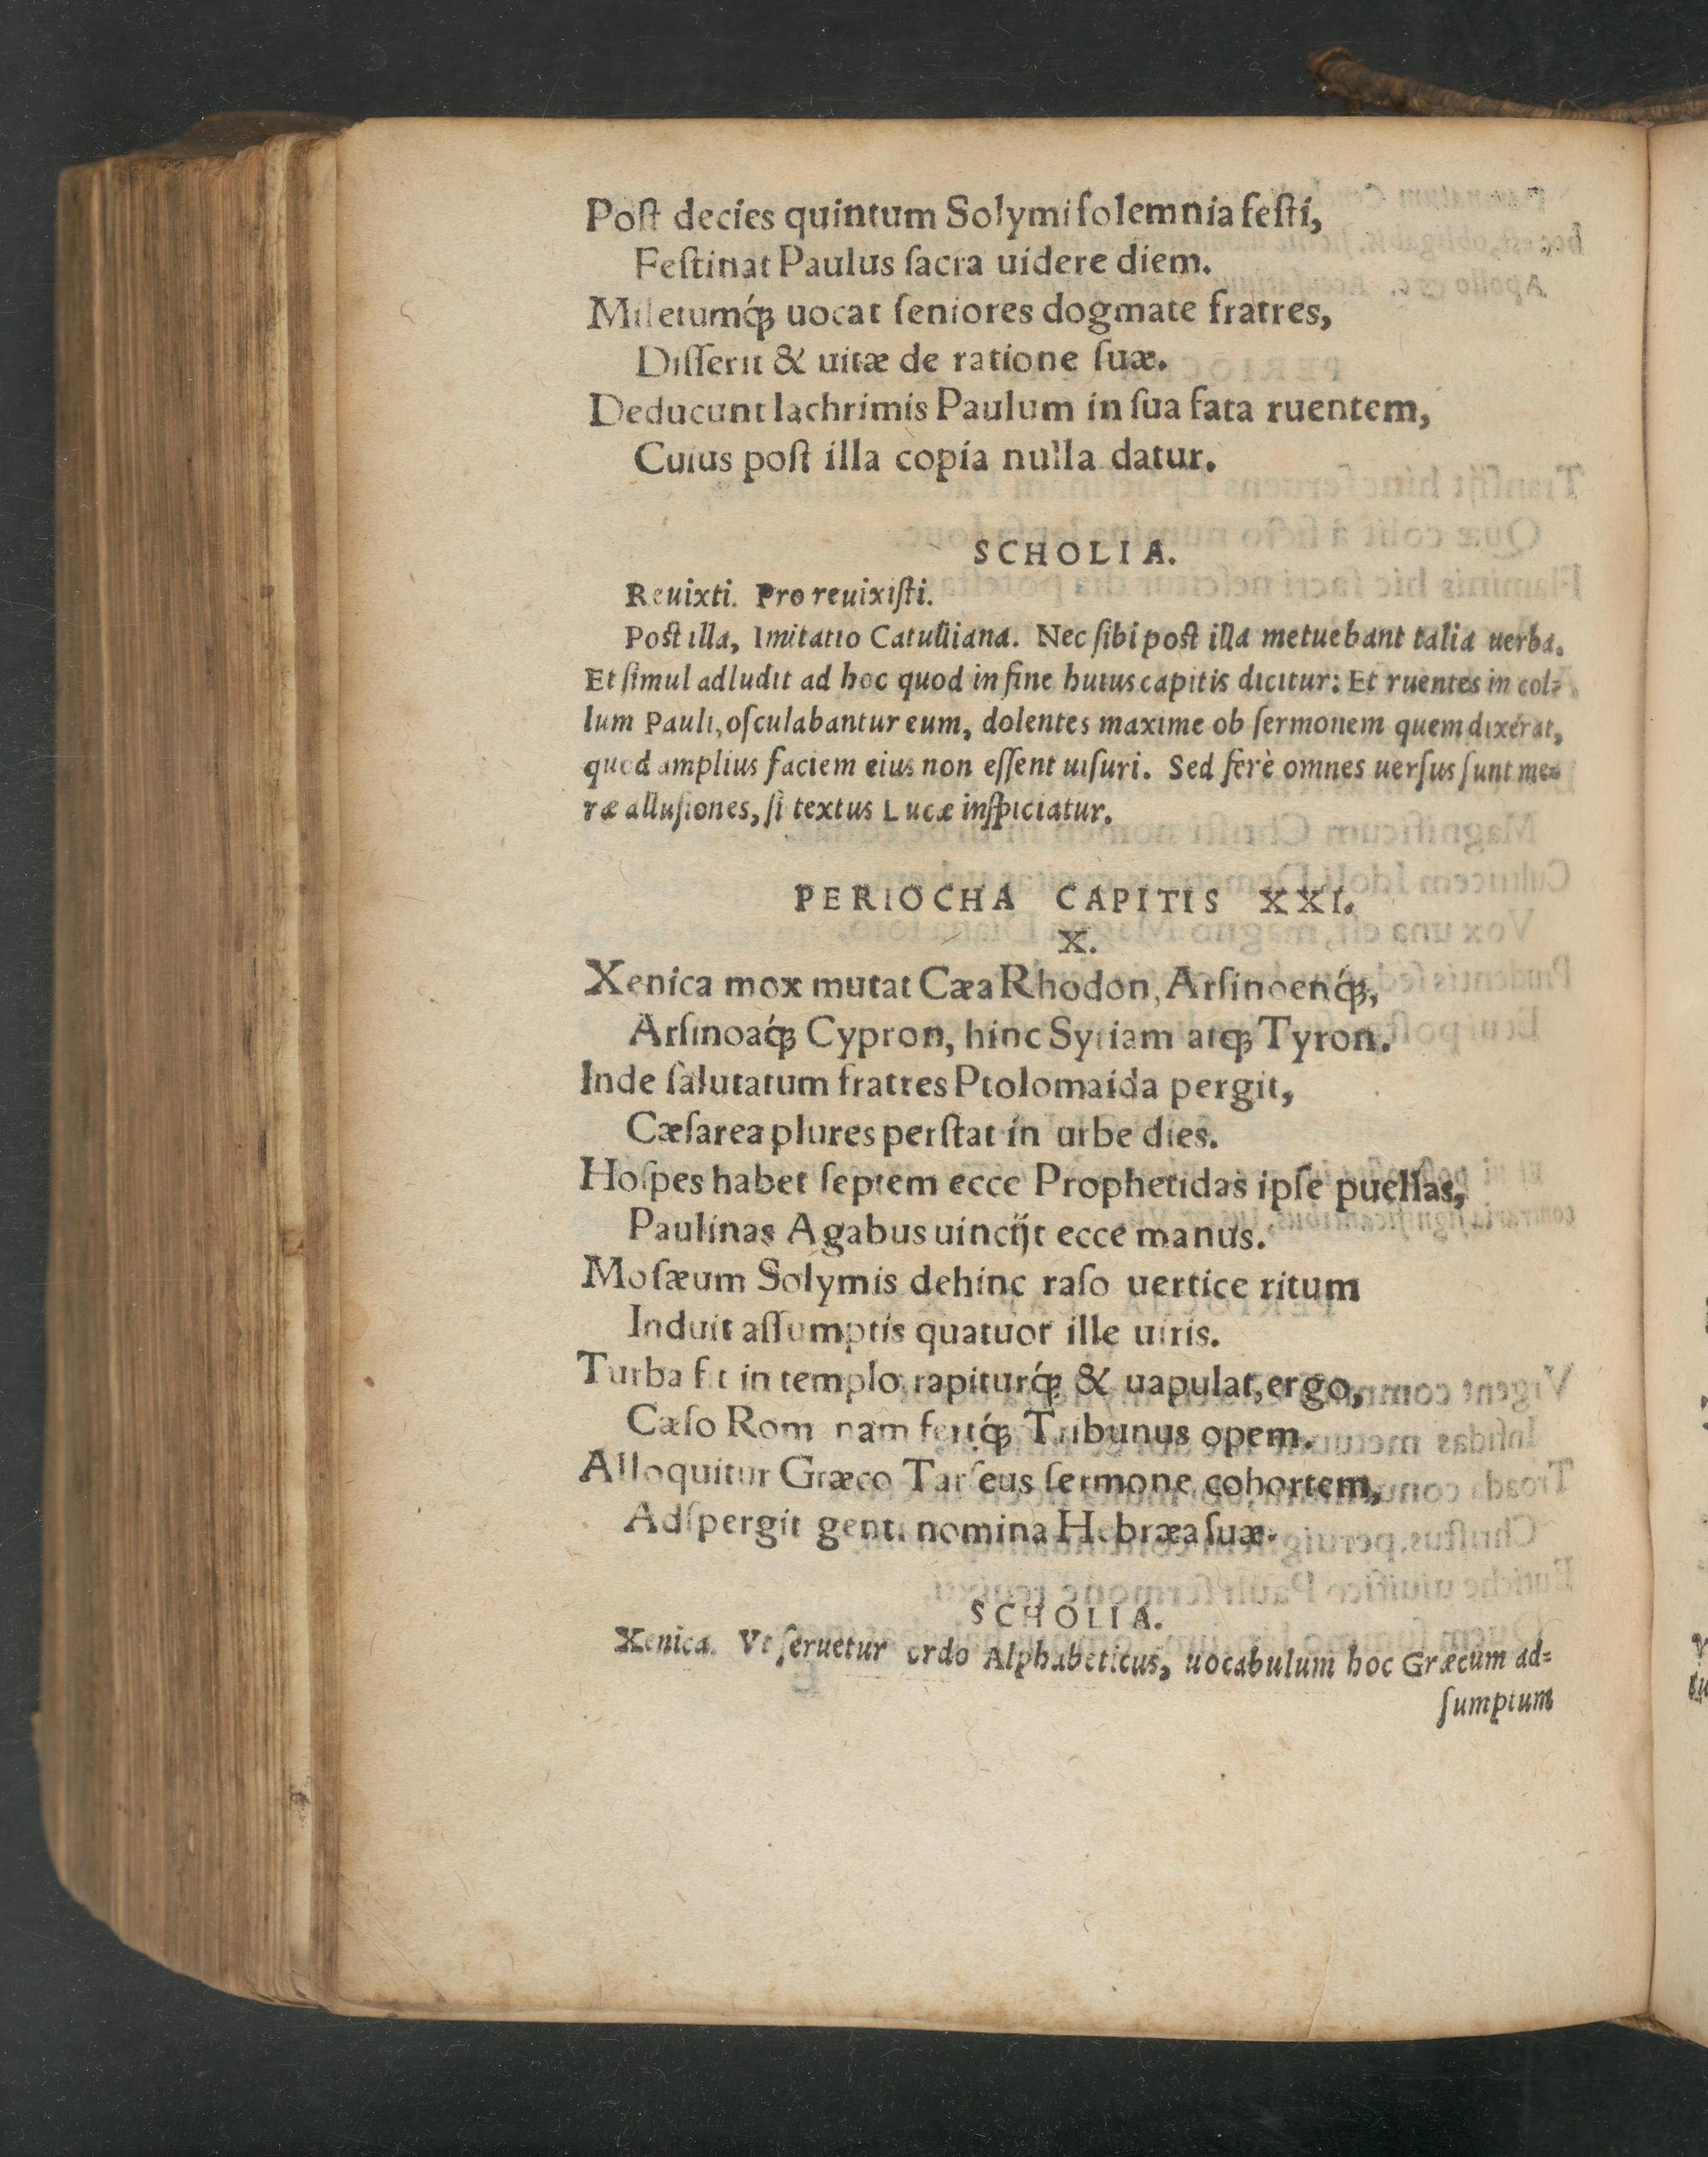 Poſt decies quintum Solymi ſolemnia feſti,
Feſtinat Paulus ſacra uidere diem.
Miletumq́ꝫ uocat ſeniores dogmate fratres,
Diſſerit & uitæ de ratione ſuæ.
Deducunt lachrimis Paulum in ſua fata ruentem,
Cuius poſt illa copia nulla datur.
SCHOLIA.
Reuixti. Pro reuixiſti.
Poſt illa, Imitatio Catulliana. Nec ſibi poſt illa metuebant talia uerba.
Et ſimul adludit ad hoc quod in fine huius capitis dicitur: Et ruentes in col⸗
lum Pauli, oſculabantur eum, dolentes maxime ob ſermonem quem dixerat,
quod amplius faciem eius non eſſent uiſuri. Sed ferè omnes uerſus ſunt me⸗
ræ alluſiones, ſi textus Lucæ inſpiciatur.
PERIOCHA CAPITIS XXI.
X.
Xenica mox mutat Cæa Rhodon, Arſinoenq́ꝫ,
Arſinoaq́ꝫ Cypron, hinc Syriam atqꝫ Tyron.
Inde ſalutatum fratres Ptolomaida pergit,
Cæſarea plures perſtat in urbe dies.
Hoſpes habet ſeptem ecce Prophetidas ipſe puellas,
Paulinas Agabus uincijt ecce manus.
Moſæum Solymis dehinc raſo uertice ritum
Induit aſſumptis quatuor ille uiris.
Turba fit in templo, rapiturq́ꝫ & uapulat, ergo,
Cæſo Rom nam fertq́ꝫ Tribunus opem.
Alloquitur Græco Tarſeus ſermone cohortem,
Adſpergit genti nomina Hebræa ſuæ.
SCHOLIA.
Xenica. Vt ſeruetur ordo Alphabeticus, uocabulum hoc Græcum ad⸗
ſumptum